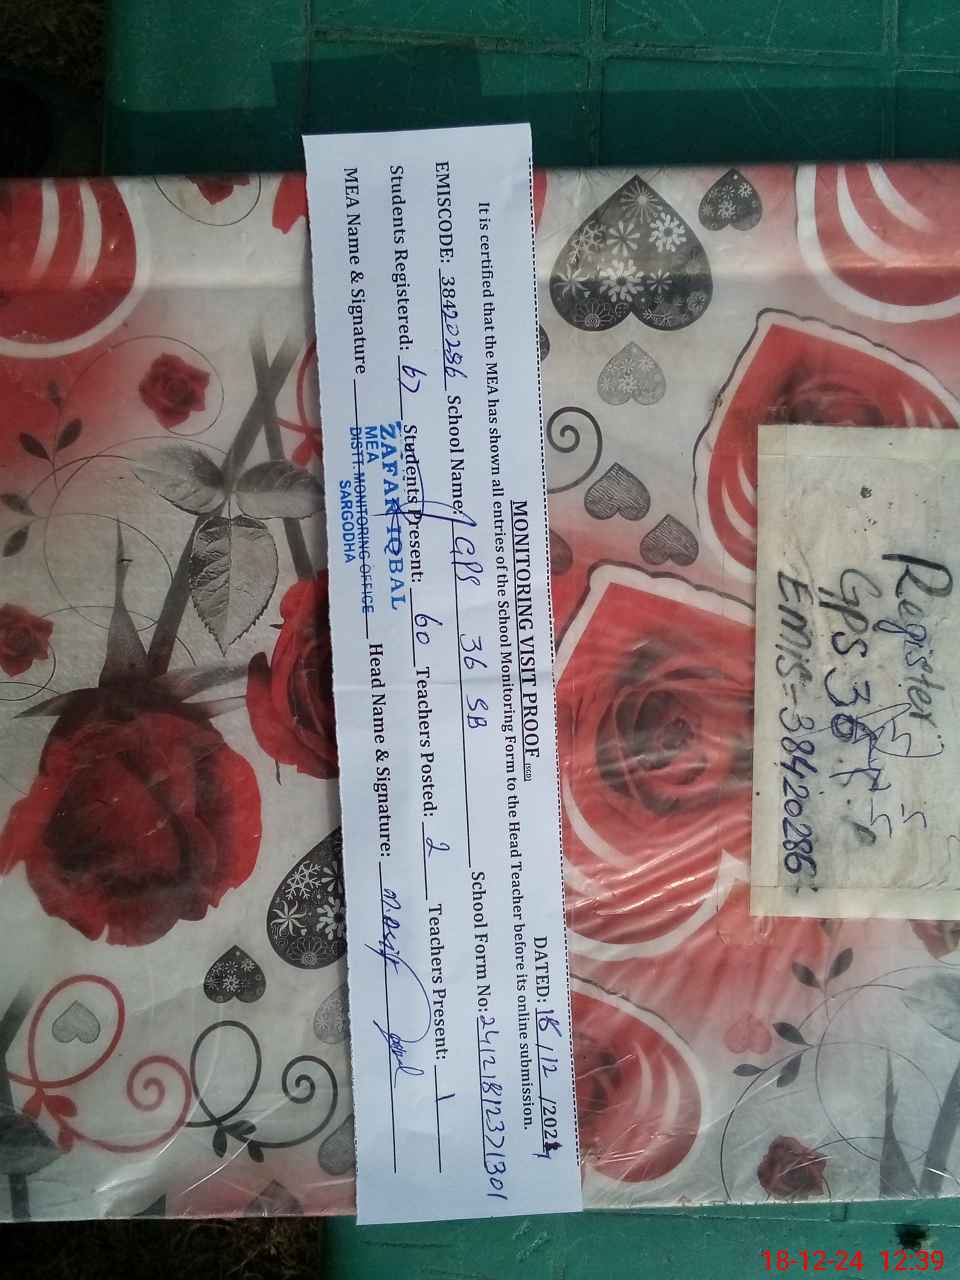 MONITORING VISIT PROOF (SGD)
DATED: 18/12/2024
It is certified that the MEA has shown all entries of the School Monitoring Form to the Head Teacher before its online submission.
EMISCODE: 38420286 School Name: GPS 36 SB School Form No: 24121812371301
Students Registered: 67 Students Present: 60 Teachers Posted: 2 Teachers Present: 1
MEA Name & Signature Head Name & Signature: M. Asif
ZAFAR IQBAL
MEA
DISTT. MONITORING OFFICE
SARGODHA
Register
GPS 36
Emis = 38420286
18-12-24 12:39